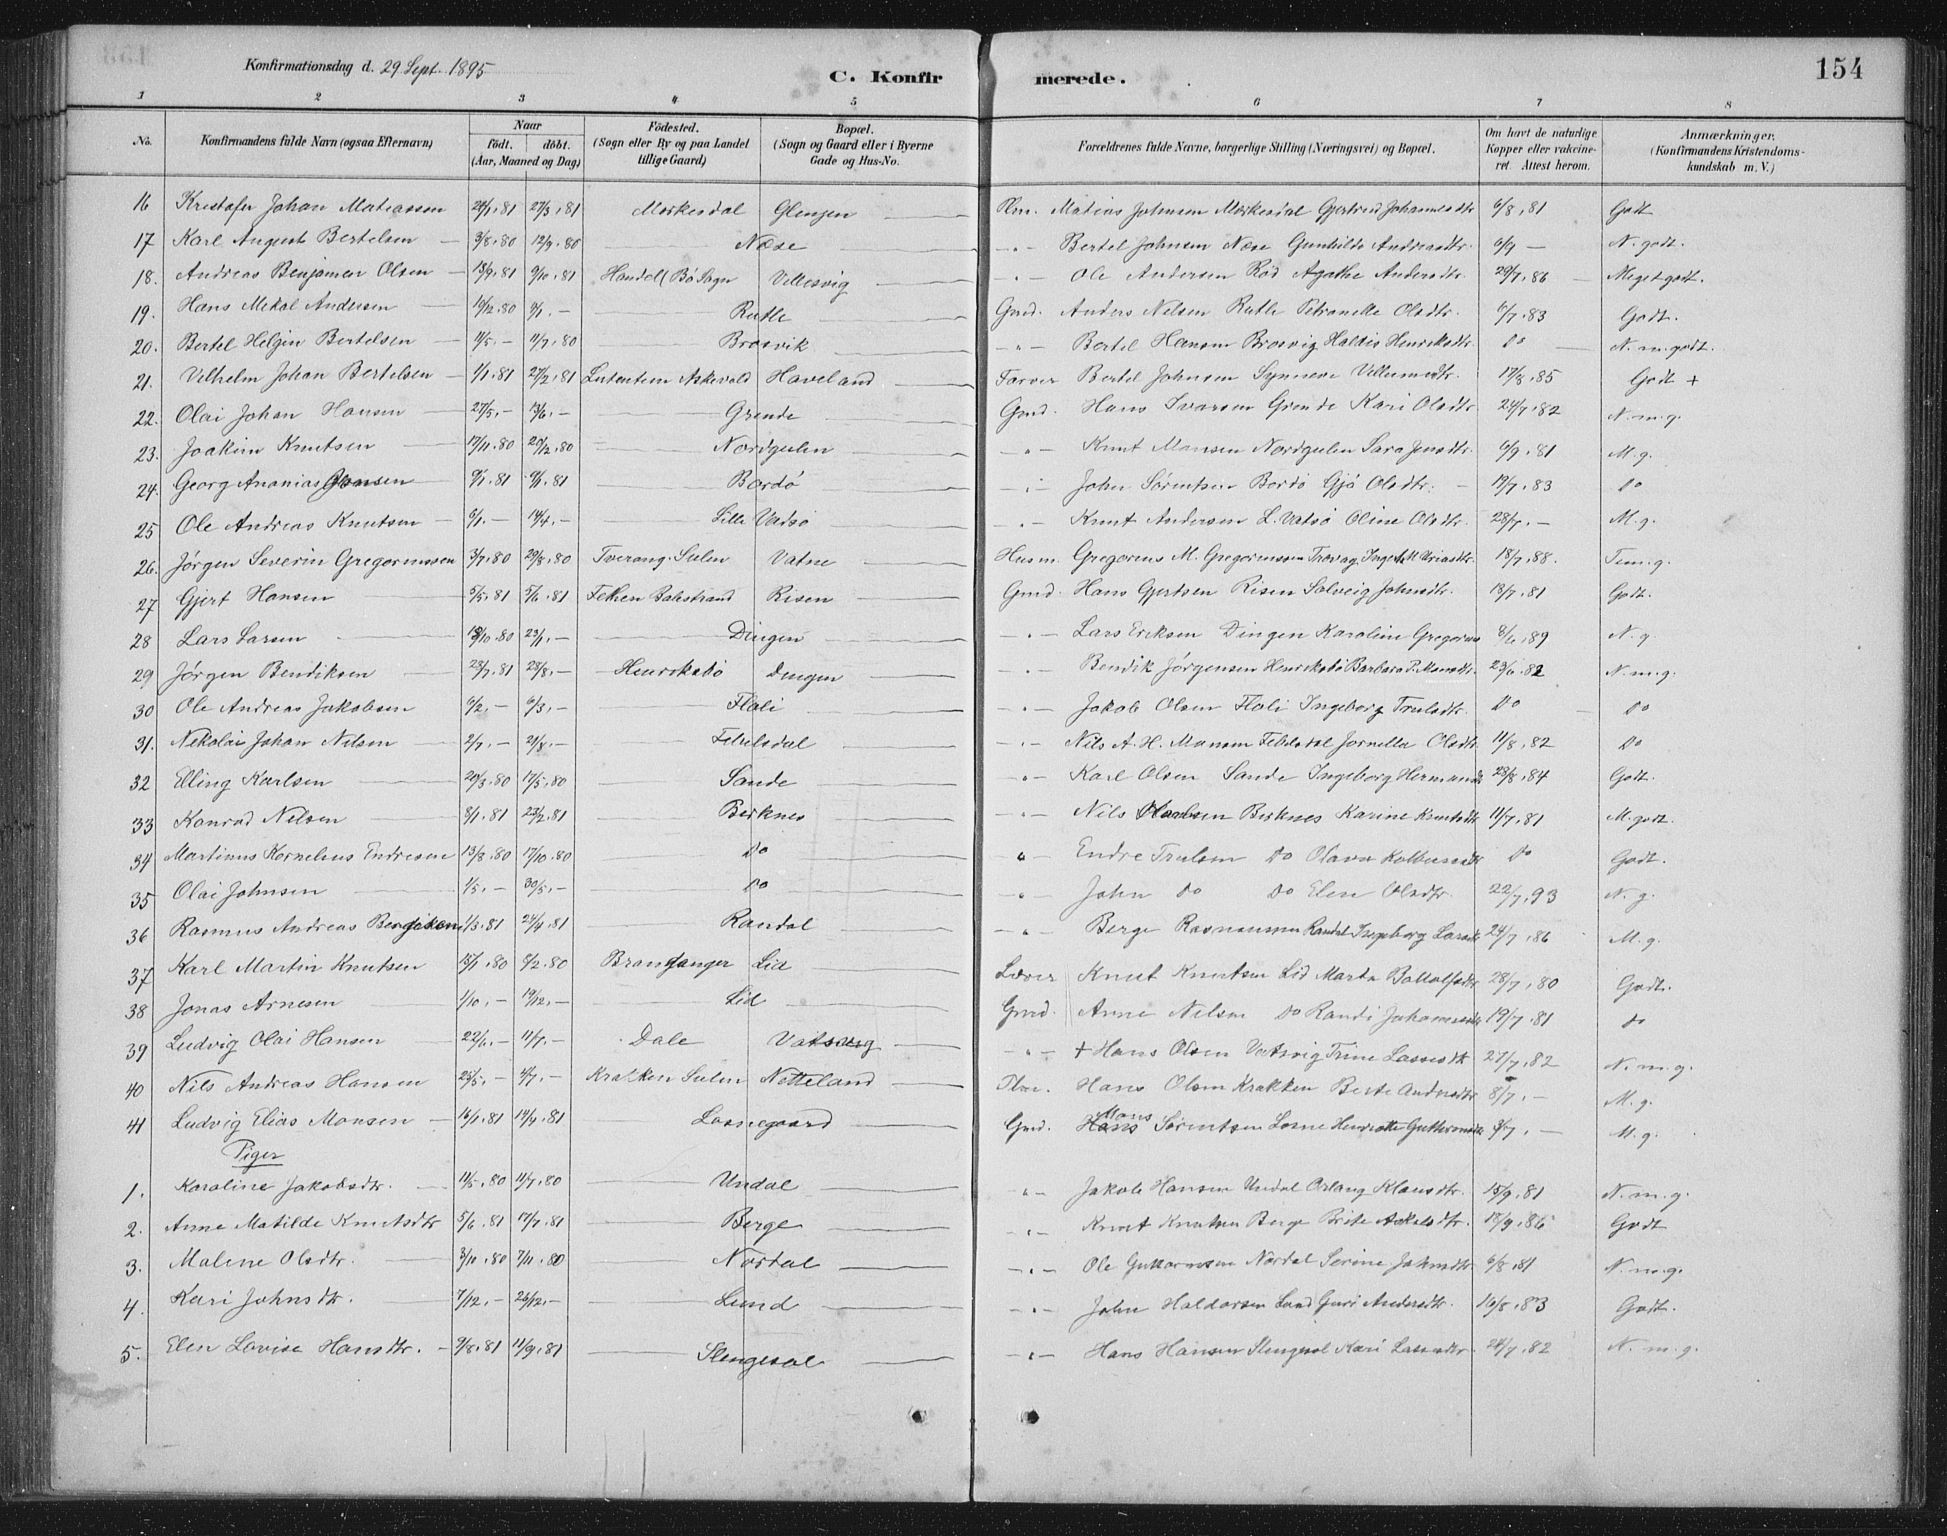 Konfirmationsdag d. 29 Sept. 1895
C. Konfirmerede.
154
1 2 3 4 5 6 7 8
No. Konfirmandens fulde Navn (ogsaa Efternavn) Naar født. døbt. (Aar, Maaned og Dag) Fødested. (Sogn eller By og paa Landet tillige Gaard) Bopæl. (Sogn og Gaard eller i Byerne Gade og Hus-No. Forældrenes fulde Navne, borgerlige Stilling (Næringsvei) og Bopæl. Om havt de naturlige Kopper eller vakcineret. Attest herom. Anmærkninger. (Konfirmandens Kristendomskundskab m. V.)
16 Kristofer Johan Matiassen 27/3,81 Mørkesdal Glenjen Matias Johnsen Mørkesdal Gjertrud Johannesdtr 6/8,81 Godt
17 Karl August Bertelsen 3/8,80 12/9,80 Næse -"- Bertel Johnsen Næse Gunhilde Andreasdtr. 6/9 — N. godt.
18. Andreas Benjamin Olsen 13/9,81 9/10,81 Handel (Bø Sogn Villesvig -"- Ole Andersen Rød Agathe Andersdtr. 29/7,86 Meget godt.
19. Hans Mekal Andersen 19/12.80 9/1.- Rutle Grnd. Anders Nelsen Rutle Petranelle Olsdtr. 6/7,83 Godt.
20. Bertel Helgin Bertelsen 11/5.- 11/7,80 Brosvik -"- Bertel Hansen Brosvig Haldis Henriksdtr. Do N. m. godt.
21. Vilhelm Johan Bertelsen 1/1,81 27/2,81 Askevold Haveland Farver Bertel Johnsen Synneve Villumsdtr. 17/8,85 Godt +
22. Olai Johan Hansen 27/5,- 13/6,- Grende Grnd. Hans Ivarsen Grende Kari Olsdtr. 24/7,82 N. m. g.
23. Joakim Knutsen 17/11.80 Nordgulen -"- Knut Monsen Nordgulen Sara Jensdtr. 6/9,81 M. g.
24. Georg Ananias Johnsen 9/1,81 Bordø -"- John Sørentsen Bordø Gjø Olsdtr. 19/7,83 Do
25 Ole Andreas Knutsen 6/1.- 14/4,- Lille Vatsø -"- Knut Andersen L. Vatsø Oline Olsdtr. 28/7.- M. g.
26. Jørgen Severin Gregoriussen 3/7,80 29/8,80 Tverang. Sulen Vatne Husm. Gregorius M. Gregoriussen 18/7,88. Tem. g.
27 Gjert Hansen 5/5,81 5/6,81 Balestrand Risen Grnd. Hans Gjertsen Risen Solveig Johnsdtr. 13/7,81 Godt.
28 Lars Larsen 23/1.- Dingen -"- Lars Eriksen Dingen Karoline Gregorius 8/6,89 N. g
29 Jørgen Bendiksen 23/7,81 28/8,- Henriksbø Dingen -"- Bendik Jørgensen Henriksbø Barbara P. Monsdtr. 23/6.82 N. m. g.
30 Ole Andreas Jakobsen 6/2,- 6/3,- Floli -"- Jakob Olsen Floli Ingeborg Trulsdtr. Do Do
31. Nikolai Johan Nilsen 2/7,- 21/8.- -"- Nils A. H. Monsen Olsdtr. 11/8,82 Do
32 Elling Karlsen 29/3.80 17/5,80 Sande -"- Karl Olsen Sande Ingeborg Hermansdtr 23/8,84 Godt.
33 Konrad Nilsen 8/1,81 23/2,81 Birknes -"- Nils Birknes Karine Knutsdtr 11/7,81 M. godt.
34 Martinus Kornelius Endresen 13/8,80 17/10,80 Do " - Endre Trulsen Do Olava Do Godt.
35 Olai Johnsen 1/5,- 30/5,- Do -"- John Do Do Elen Olsdtr. 22/7,93 N. g.
36 Rasmus Andreas 1/3.81 24/4.81 Randal -"- Berge Rasmussen Randal Ingeborg 24/7,86 M. g.
37 Karl Martin Knutsen 15/1,80 8/2.80 Brandanger Lid Læver Knut Knutsen Lid Marta 28/7,80 Godt.
38 Jonas Arnesen 1/10,- 19/12,- Lid Grnd. Arne Nilsen Do Randi Johannesdtr 19/7,81 Do
39 Ludvig Olai Hansen 22/6,- 11/7,- Dale Vatsvig -"- + Hans Olsen Vatsvig Trine Lassesdtr 27/7,82 N. m. g.
40 Nils Andreas Hansen 25/5,- 4/7,- Krakken Sulen Notteland Hans Olsen Krakken Berte 8/7,- M. g.
41 Ludvig Elias Monsen 16/1,81 14/4,81 Losnegaard Grnd. Mons Sørentsen Losne Henriette M. g.
Piger
1. Karoline Jakobsdtr. 11/5,80 11/7,80 Undal " - Jakob Hansen Undal Orlaug Klausdtr. 15/9,81 N. m. g.
2. Anne Matilde Knutsdtr 5/6,81 17/7,81 Berge -"- Knut Knutsen Berge Brite Askelsdtr. 18/9,86 Godt
3. Malene Olsdtr. 3/10,80 7/11,80 Nordal -"- Ole Guttormsen Nordal Serine Johnsdtr 6/8,81 N. m. g.
4. Kari Johnsdtr. 7/12,- 26/12.- Lund -"- John Haldorsen Lund Guri Andersdtr. 16/8,83 Godt.
5. Elen Lovise Hansdtr. 9/8,81 11/9,81 Slengesol -"- Hans Hansen Slengesol Kari Lassesdtr. 24/7,82 N. m. g.